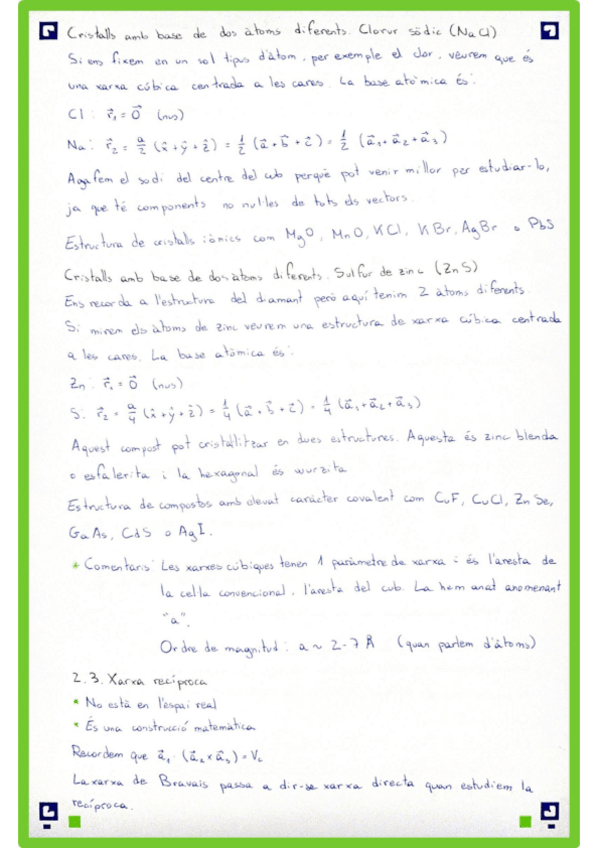 Cristalls amb base de dos àtoms diferents. Clorur sòdic (NaCl)
Si ens fixem en un sol tipus d'àtom, per exemple el clor, veurem que és
una xarxa cúbica centrada a les cares. La base atòmica és:
Cl: r⃗₁ = 0⃗ (nus)
Na: r⃗₂ = a/2 (x̂ + ŷ + ẑ) = 1/2 (a⃗ + b⃗ + c⃗) = 1/2 (a⃗₁ + a⃗₂ + a⃗₃)
Agafem el sodi del centre del cub perquè pot venir millor per estudiar-lo,
ja que té components no nul·les de tots els vectors.
Estructura de cristalls iònics com MgO, MnO, KCl, KBr, AgBr o PbS
Cristalls amb base de dos àtoms diferents. Sulfur de zinc (ZnS)
Ens recorda a l'estructura del diamant però aquí tenim 2 àtoms diferents.
Si mirem els àtoms de zinc veurem una estructura de xarxa cúbica centrada
a les cares. La base atòmica és:
Zn: r⃗₁ = 0⃗ (nus)
S: r⃗₂ = a/4 (x̂ + ŷ + ẑ) = 1/4 (a⃗ + b⃗ + c⃗) = 1/4 (a⃗₁ + a⃗₂ + a⃗₃)
Aquest compost pot cristal·litzar en dues estructures. Aquesta és zinc blenda
o esfalerita i la hexagonal és wurzita
Estructura de compostos amb elevat caràcter covalent com CuF, CuCl, ZnSe,
GaAs, CdS o AgI.
* Comentaris: Les xarxes cúbiques tenen 1 paràmetre de xarxa i és l'aresta de
la cel·la convencional, l'aresta del cub. La hem anat anomenant
"a".
Ordre de magnitud: a ~ 2-7 Å (quan parlem d'àtoms)
2.3. Xarxa recíproca
* No està en l'espai real
* És una construcció matemàtica
Recordem que a⃗₁ · (a⃗₂ x a⃗₃) = V꜀
La xarxa de Bravais passa a dir-se xarxa directa quan estudiem la
recíproca.